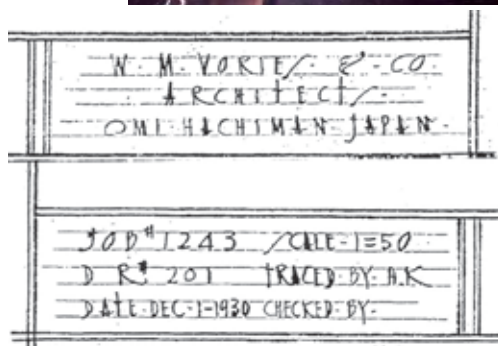 W·M·VORIES·&·CO·
ARCHITECTS·
OMI-HACHIMAN-JAPAN·
JOB#1243 SCALE-1=50
DR# 201 TRACED·BY·A.K
DATE·DEC-1-1930 CHECKED·BY·